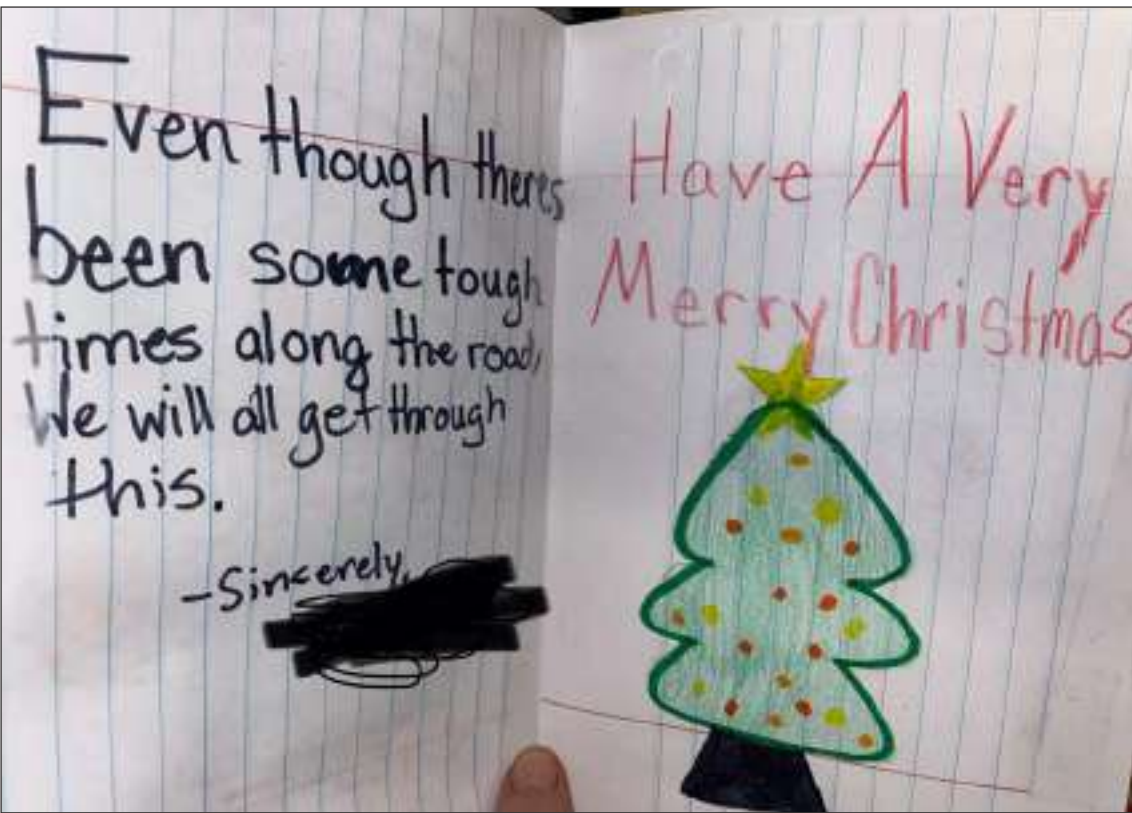 Even though theres
been some tough
times along the road,
We will all get through
this.
-Sincerely,
Have A Very
Merry Christmas